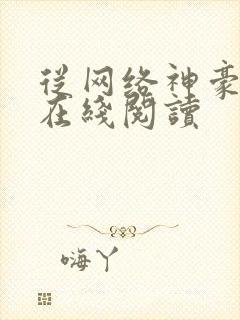 從网络神豪
在綫閱讀
嗨丫